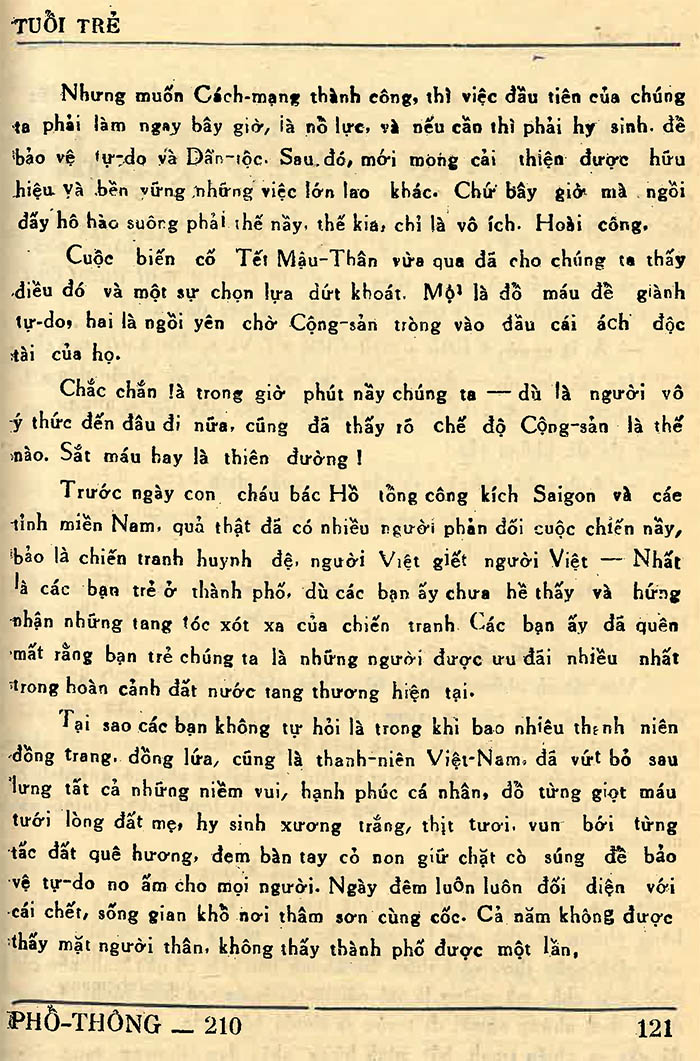 TUỔI TRẺ
Nhưng muốn Cách-mạng thành công, thì việc đầu tiên của chúng
ta phải làm ngay bây giờ, là nỗ lực, và nếu cần thì phải hy sinh. để
bảo vệ tự-do và Dân-tộc. Sau đó, mới mong cải thiện được hữu
hiệu và bền vững những việc lớn lao khác. Chứ bây giờ mà ngồi
đấy hô hào suông phải thế nầy, thế kia, chỉ là vô ích. Hoài công.
Cuộc biến cố Tết Mậu-Thân vừa qua đã cho chúng ta thấy
điều đó và một sự chọn lựa dứt khoát. Một là đổ máu để giành
tự-do, hai là ngồi yên chờ Cộng-sản tròng vào đầu cái ách độc
tài của họ.
Chắc chắn là trong giờ phút nầy chúng ta — dù là người vô
ý thức đến đâu đi nữa, cũng đã thấy rõ chế độ Cộng-sản là thế
nào. Sắt máu hay là thiên đường !
Trước ngày con cháu bác Hồ tổng công kích Saigon và các
tỉnh miền Nam, quả thật đã có nhiều người phản đối cuộc chiến nầy,
bảo là chiến tranh huynh đệ, người Việt giết người Việt — Nhất
là các bạn trẻ ở thành phố, dù các bạn ấy chưa hề thấy và hứng
nhận những tang tóc xót xa của chiến tranh. Các bạn ấy đã quên
mất rằng bạn trẻ chúng ta là những người được ưu đãi nhiều nhất
trong hoàn cảnh đất nước tang thương hiện tại.
Tại sao các bạn không tự hỏi là trong khi bao nhiêu thanh niên
đồng trang, đồng lứa, cũng là thanh-niên Việt-Nam, đã vứt bỏ sau
lưng tất cả những niềm vui, hạnh phúc cá nhân, đổ từng giọt máu
tưới lòng đất mẹ, hy sinh xương trắng, thịt tươi, vun bới từng
tấc đất quê hương, đem bàn tay cỏ non giữ chặt cò súng để bảo
vệ tự-do no ấm cho mọi người. Ngày đêm luôn luôn đối diện với
cái chết, sống gian khổ nơi thâm sơn cùng cốc. Cả năm không được
thấy mặt người thân, không thấy thành phố được một lần,
PHỔ-THÔNG — 210
121